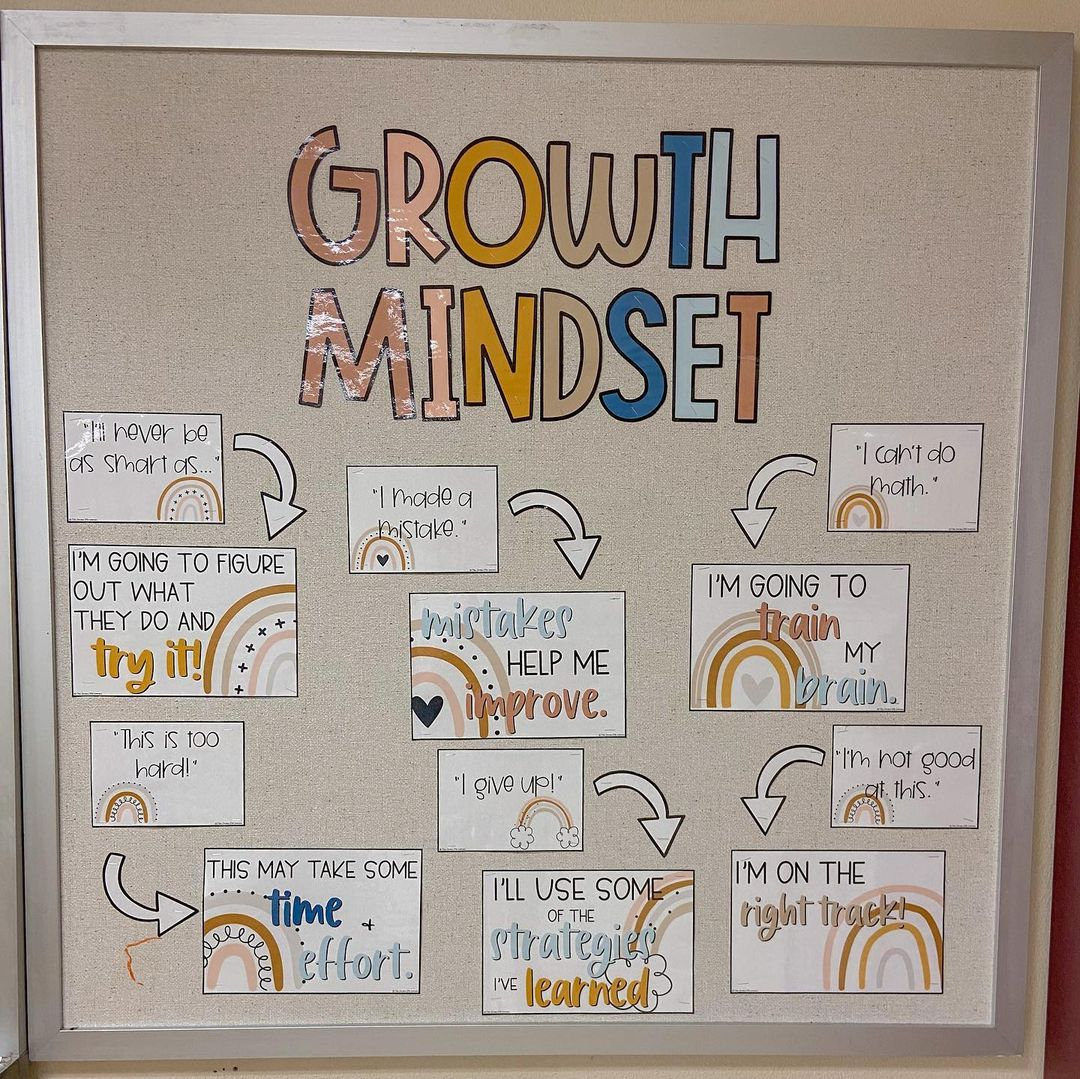 GROWTH
MINDSET
"I'll never be
as smart as..."
I'M GOING TO FIGURE
OUT WHAT
THEY DO AND
try it!
"I made a
mistake."
mistakes
HELP ME
improve.
"I can't do
math."
I'M GOING TO
train
MY
brain.
"This is too
hard!"
THIS MAY TAKE SOME
time
+
effort.
"I give up!"
I'LL USE SOME
OF THE
strategies
I'VE learned
"I'm not good
at this."
I'M ON THE
right track!